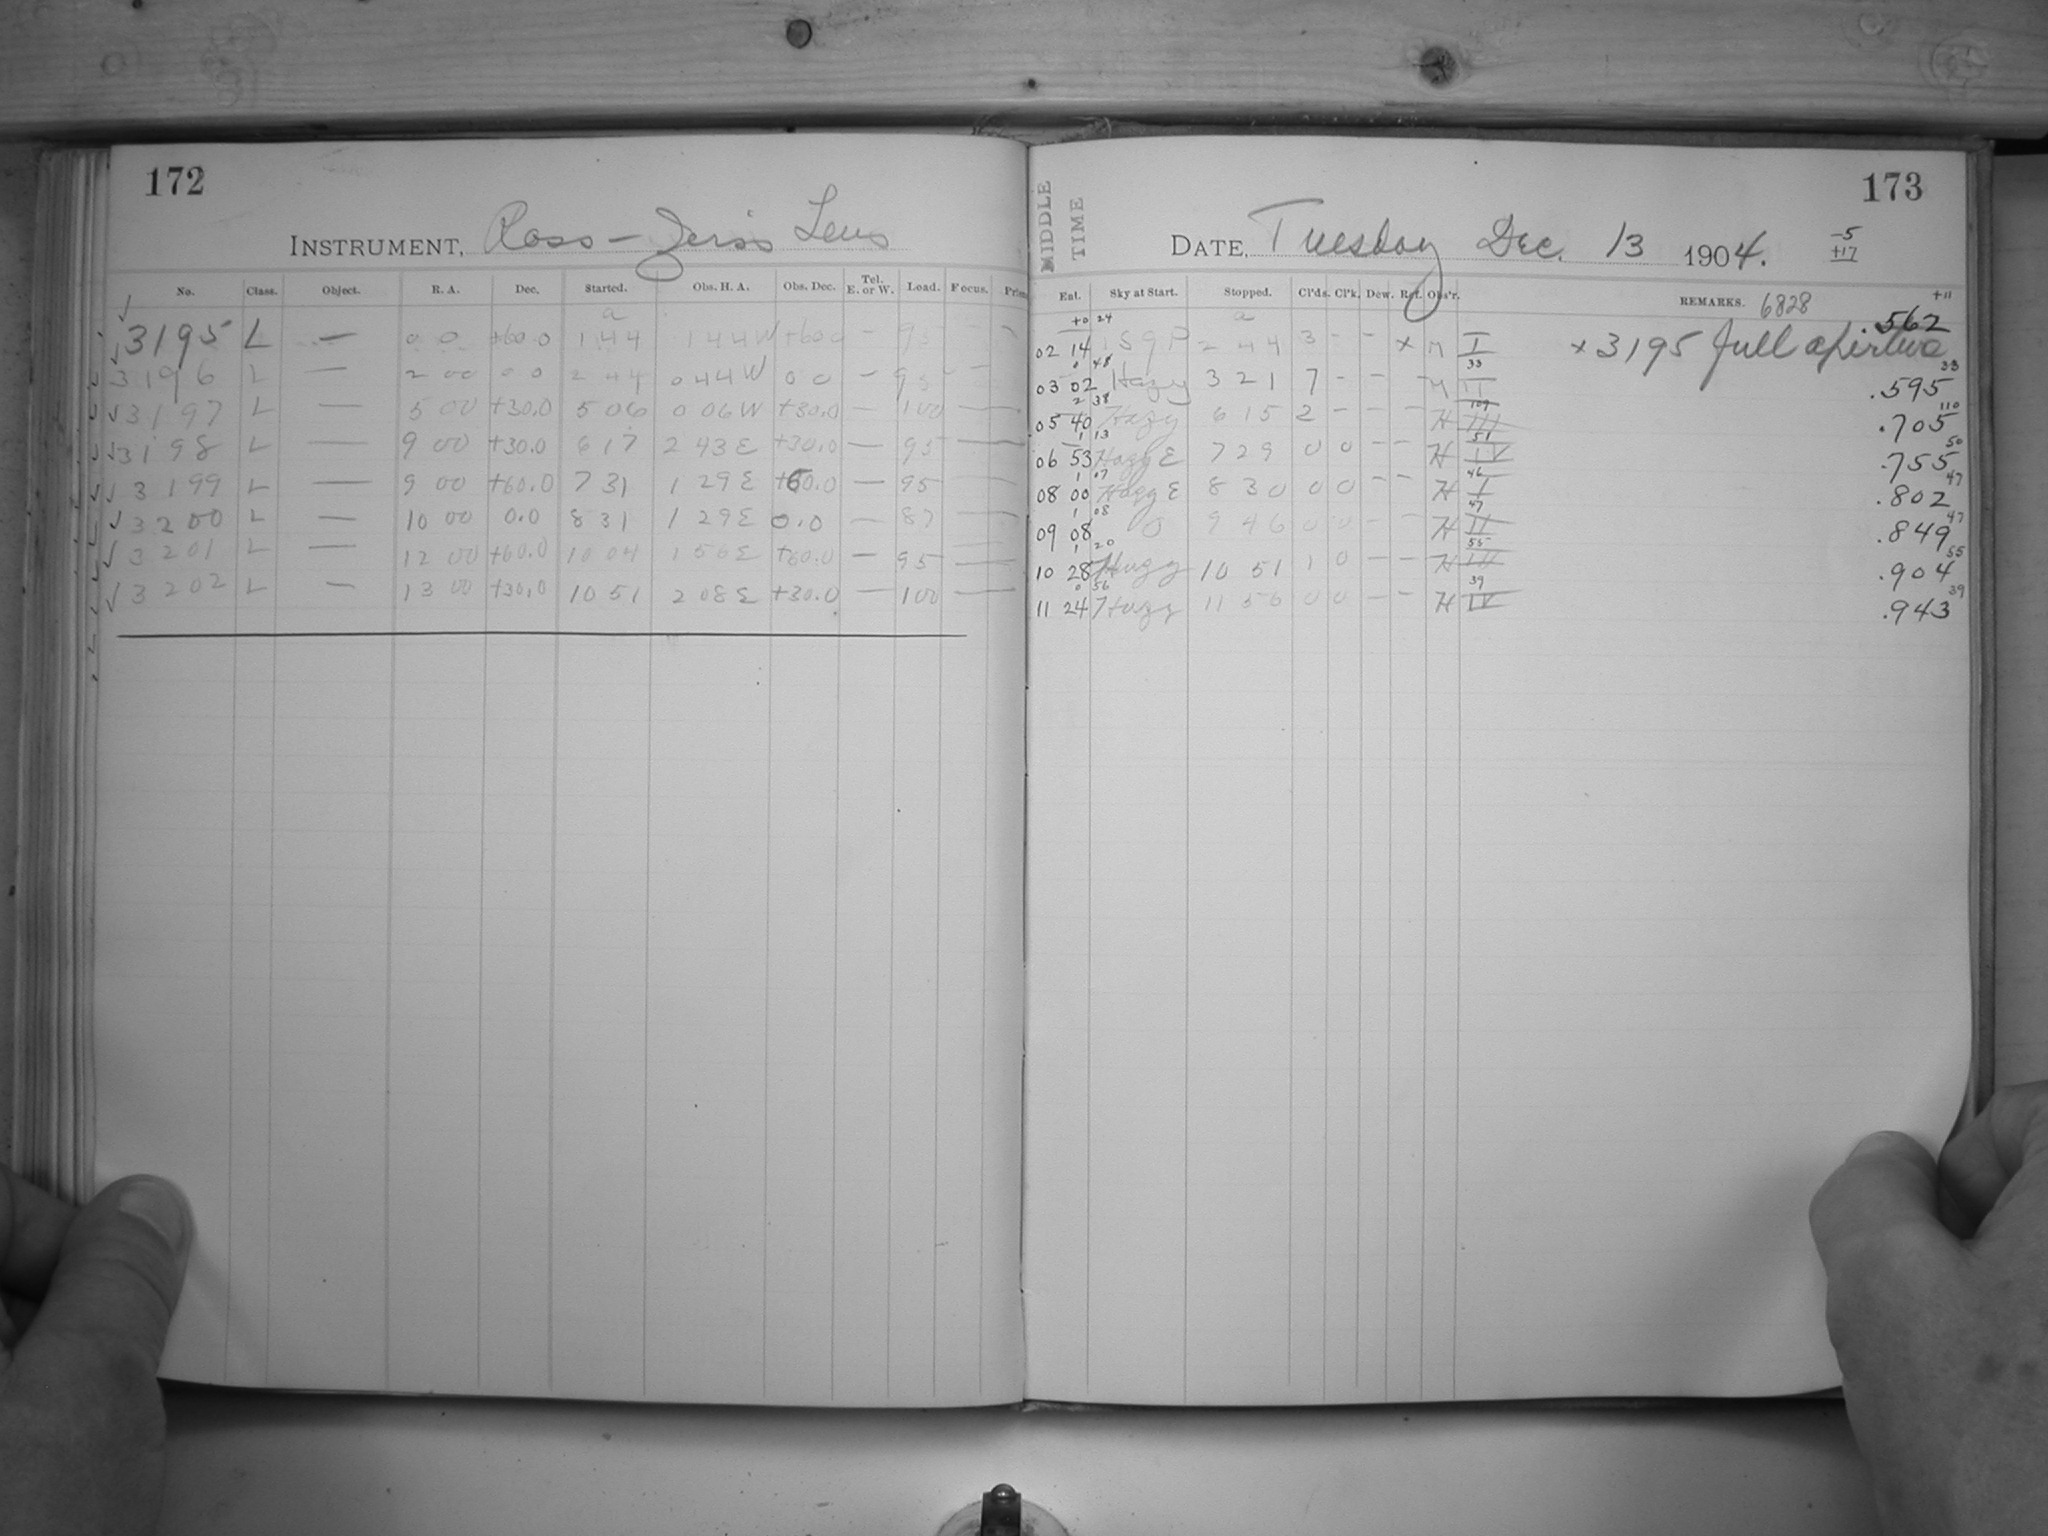 172
INSTRUMENT, Ross-Zeiss Lens
No. Class. Object. R. A. Dec. Started. Obs. H. A. Obs. Dec. Tel. E. or W. Lead. Focus. Prism
a
✓3195 L — 0 0 +60.0 1 44 1 44 W +60.0 — 95 — —
3196 L — 2 00 0 0 2 44 0 44 W 0 0 — 95 — —
✓3197 L — 5 00 +30.0 5 06 0 06 W +30.0 — 100 — —
✓3198 L — 9 00 +30.0 6 17 2 43 E +30.0 — 95 — —
✓3199 L — 9 00 +60.0 7 31 1 29 E +60.0 — 95 — —
✓3200 L — 10 00 0.0 8 31 1 29 E 0.0 — 87 — —
✓3201 L — 12 00 +60.0 10 04 1 56 E +60.0 — 95 — —
✓3202 L — 13 00 +30.0 10 51 2 08 E +30.0 — 100 — —
173
MIDDLE TIME
DATE, Tuesday Dec. 13 1904. -5
+17
Ent. Sky at Start. Stopped. Cl'ds. Cl'k. Dew. Ref. Obs'r. REMARKS. 6828 +11
+0 24 a .562
02 14 2 44 3 - - x M I x 3195 full aperture
0 48 33 33
03 02 Hazy 3 21 7 - - - M II .595
2 38 109 110
05 40 Hazy 6 15 2 - - - H III .705
1 13 51 50
06 53 Hazy E 7 29 0 0 - - H IV .755
1 07 46 47
08 00 Hazy E 8 30 0 0 - - H I .802
1 08 47 47
09 08 0 9 46 0 0 - - H II .849
1 20 55 55
10 28 Hazy 10 51 1 0 - - H III .904
0 56 39 39
11 24 Hazy 11 56 0 0 - - H IV .943